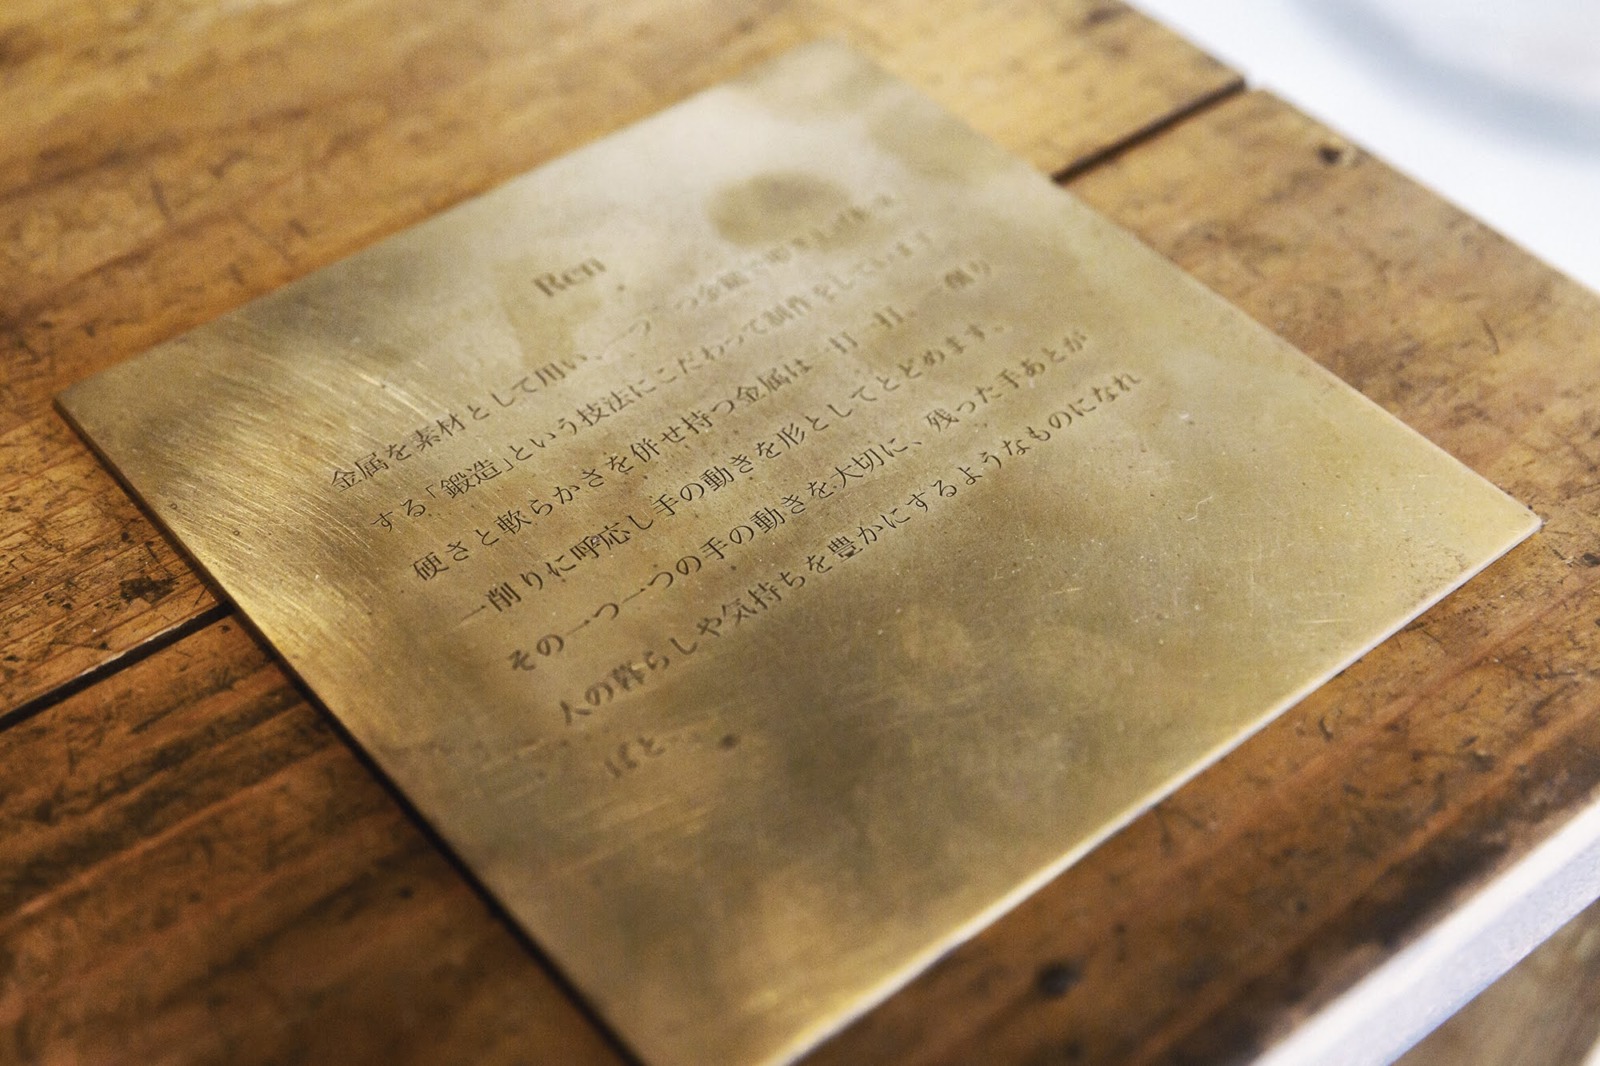 Ren
金属を素材として用い、一つ一つ金鎚で
する「鍛造」という技法にこだわって制作をしています
硬さと軟らかさを併せ持つ金属は一打一打、一削り
一削りに呼応し手の動きを形としてとどめます。
その一つ一つの手の動きを大切に、残った手あとが
人の暮らしや気持ちを豊かにするようなものになれ
ばと